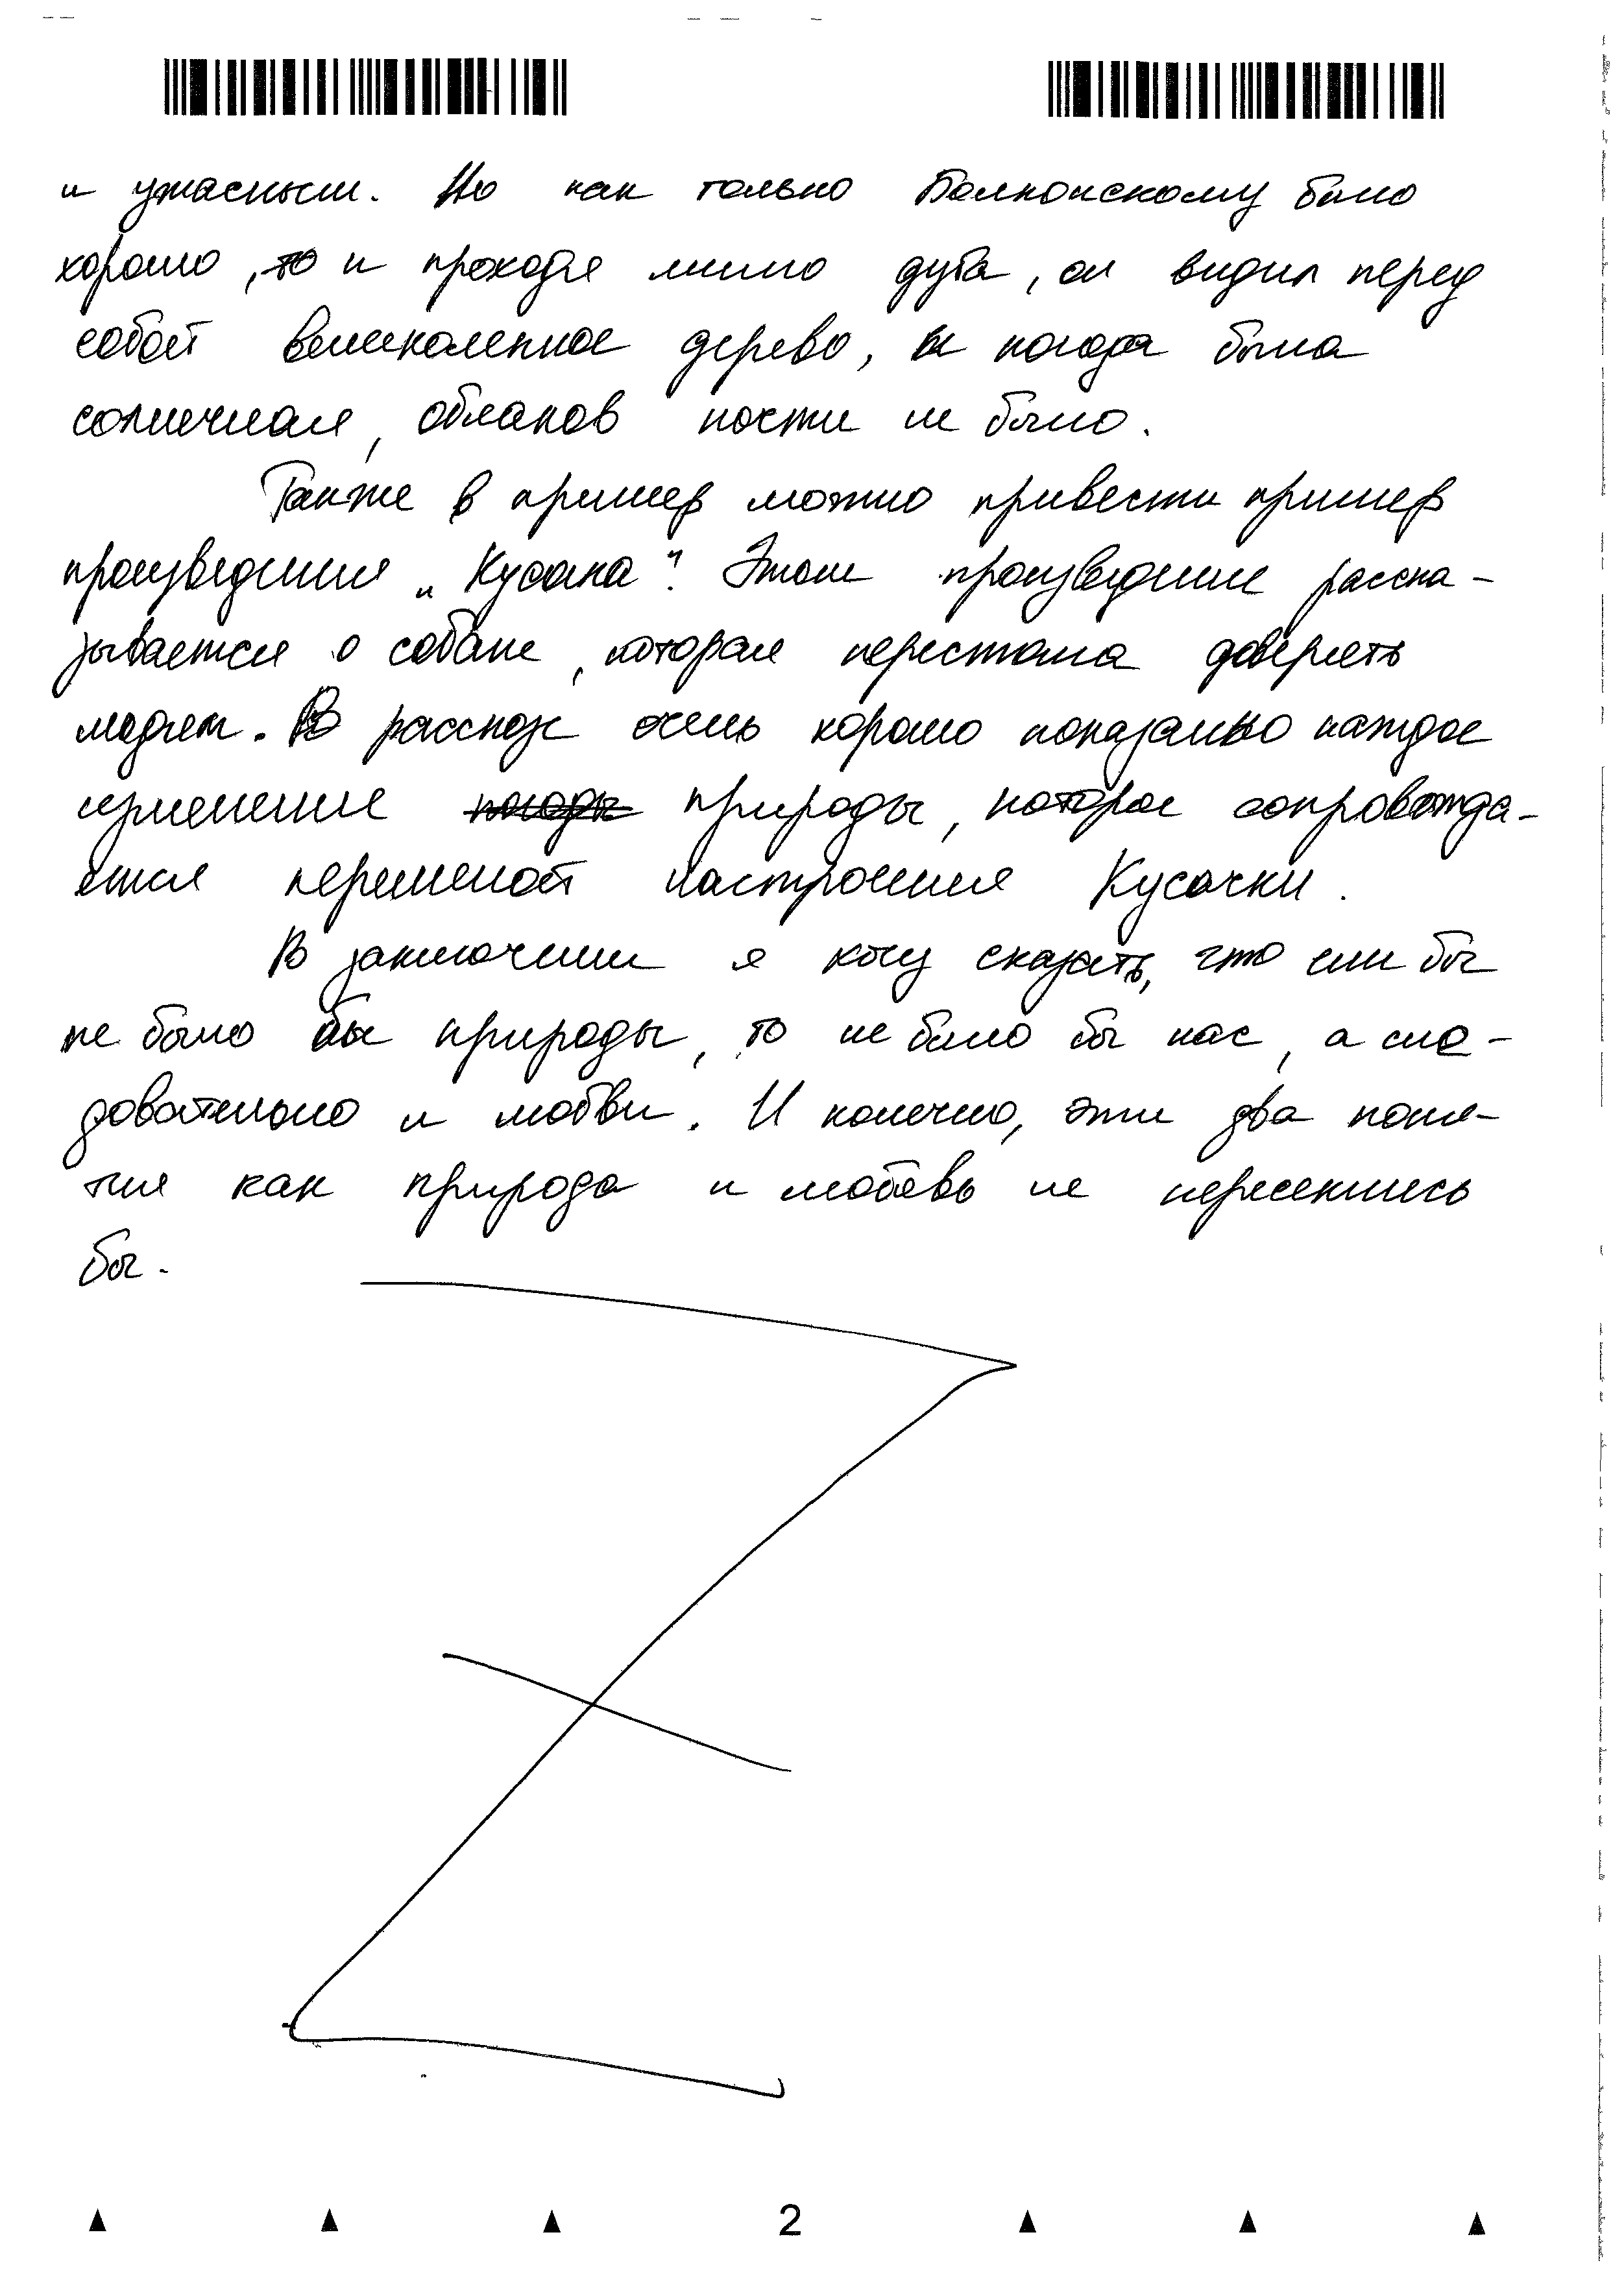 и ужасным. Но как только Болконскому было
хорошо, то и проходя мимо дуба, он видил перед
собой великолепное дерево, и погода была
солнечная, облаков почти не было.
Также в пример можно привести пример
произведения „Кусака". Этом произведение расска-
зывается о собаке, которая перестала доверять
людям. В рассказе очень хорошо показанно каждое
изменение погоды природы, которое сопровожда-
ется переменой настроения Кусачки.
В заключении я хочу сказать, что если бы
не было бы природы, то не было бы нас, а сле-
довательно и любви. И конечно, эти два поня-
тия как природа и любовь не пересеклись
бы.
2